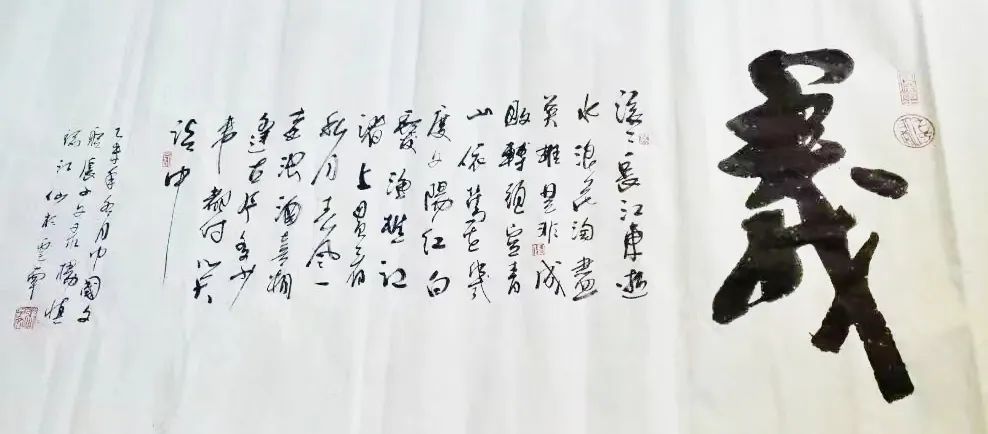 義
滚々長江東逝
水浪花淘盡
英雄是非成
敗轉頭空青
山依舊在幾
度夕陽紅白
髮漁樵江
渚上慣看
秋月春風一
壺濁酒喜相
逢古今多少
事都付笑
談中
乙未年月中國文
楊慎
臨江仙於